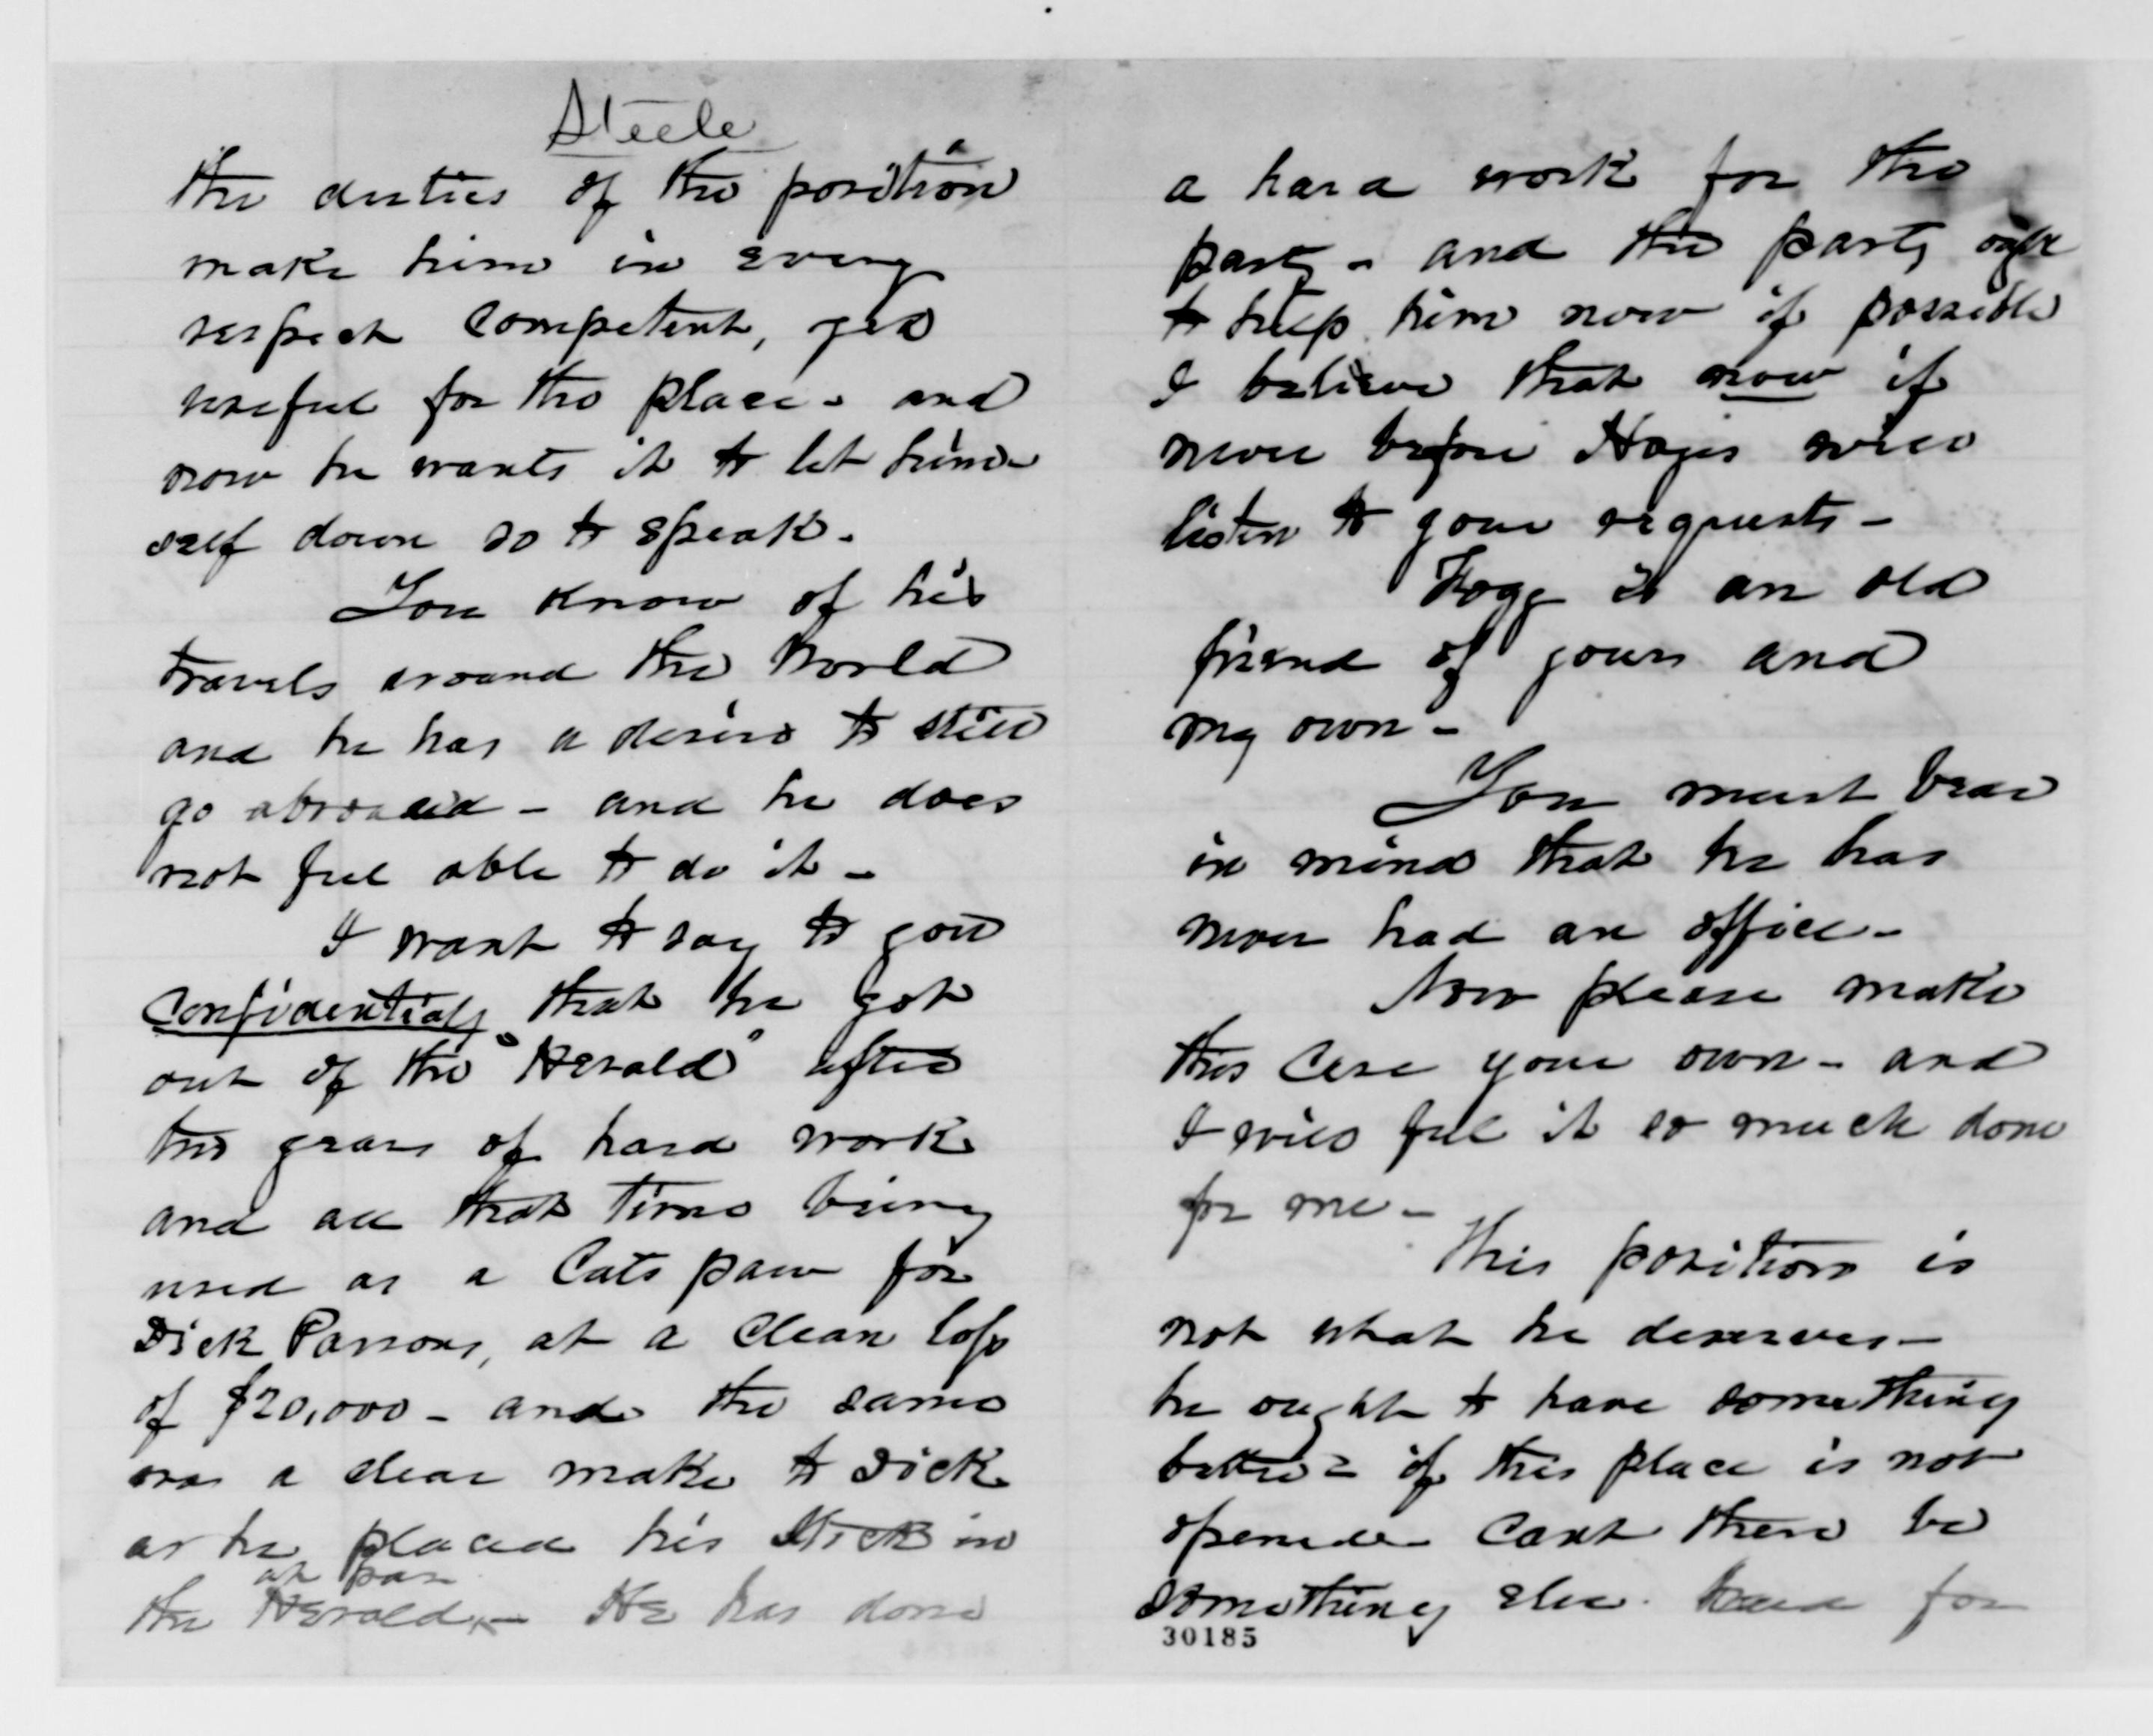 Steele
the duties of the position
make him in every
respect competent, yes
useful for the place - and
now he wants it to let him-
self down so to speak -
You know of his
travels around the World
and he has a desire to still
go abroad - and he does
not feel able to do it -
I want to say to you
Confidentialy that he got
out of the "Herald" after
two years of hard work
and all that time being
used as a Cats paw for
Dick Parsons, at a clean loss
of $20,000 - and the same
was a clear make to Dick
as he placed his Stock in
at par
the Herald - He has done
a hard work for the
party - and the party ought
to help him now if possible
I believe that now if
never before Hayes will
listen to your requests -
Fogg is an old
friend of yours and
my own -
You must bear
in mind that he has
never had an office -
Now please make
this Case your own - and
I will feel it so much done
for me -
This position is
not what he deserves -
he ought to have something
better - if this place is not
opened Cant there be
something else. for
30185